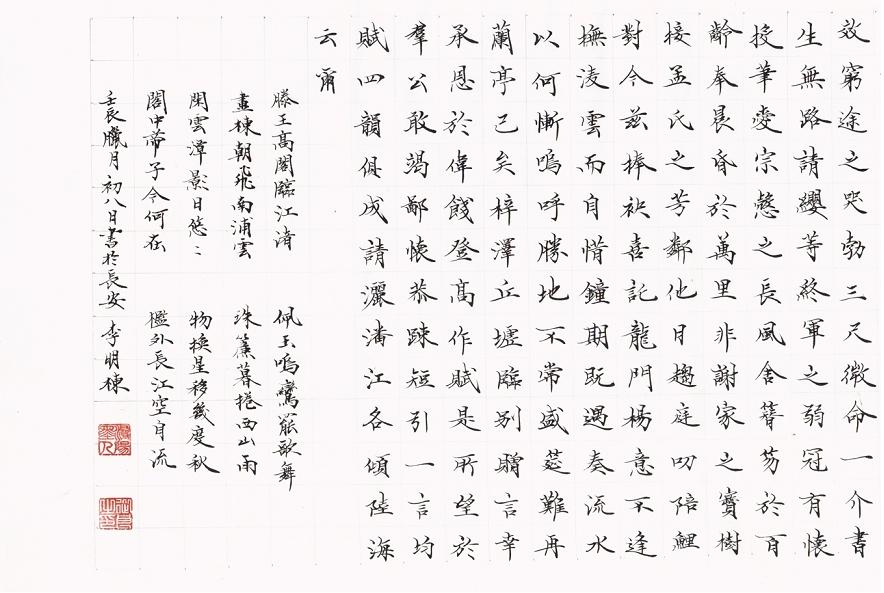 效窮途之哭勃三尺微命一介書
生無路請纓等終軍之弱冠有懷
投筆愛宗愨之長風舍簪笏於百
齡奉晨昏於萬里非謝家之寶樹
接孟氏之芳鄰他日趨庭叨陪鯉
對今茲捧袂喜託龍門楊意不逢
撫淩雲而自惜鐘期既遇奏流水
以何慚嗚呼勝地不常盛筵難再
蘭亭已矣梓澤丘墟臨別贈言幸
承恩於偉餞登高作賦是所望於
羣公敢竭鄙懷恭踈短引一言均
賦四韻俱成請灑潘江各傾陸海
云爾
滕王高閣臨江渚 佩玉鳴鸞罷歌舞
畫棟朝飛南浦雲 珠簾暮捲西山雨
閑雲潭影日悠〻 物換星移幾度秋
閣中帝子今何在 檻外長江空自流
壬辰臘月初八日書於長安 李明棟